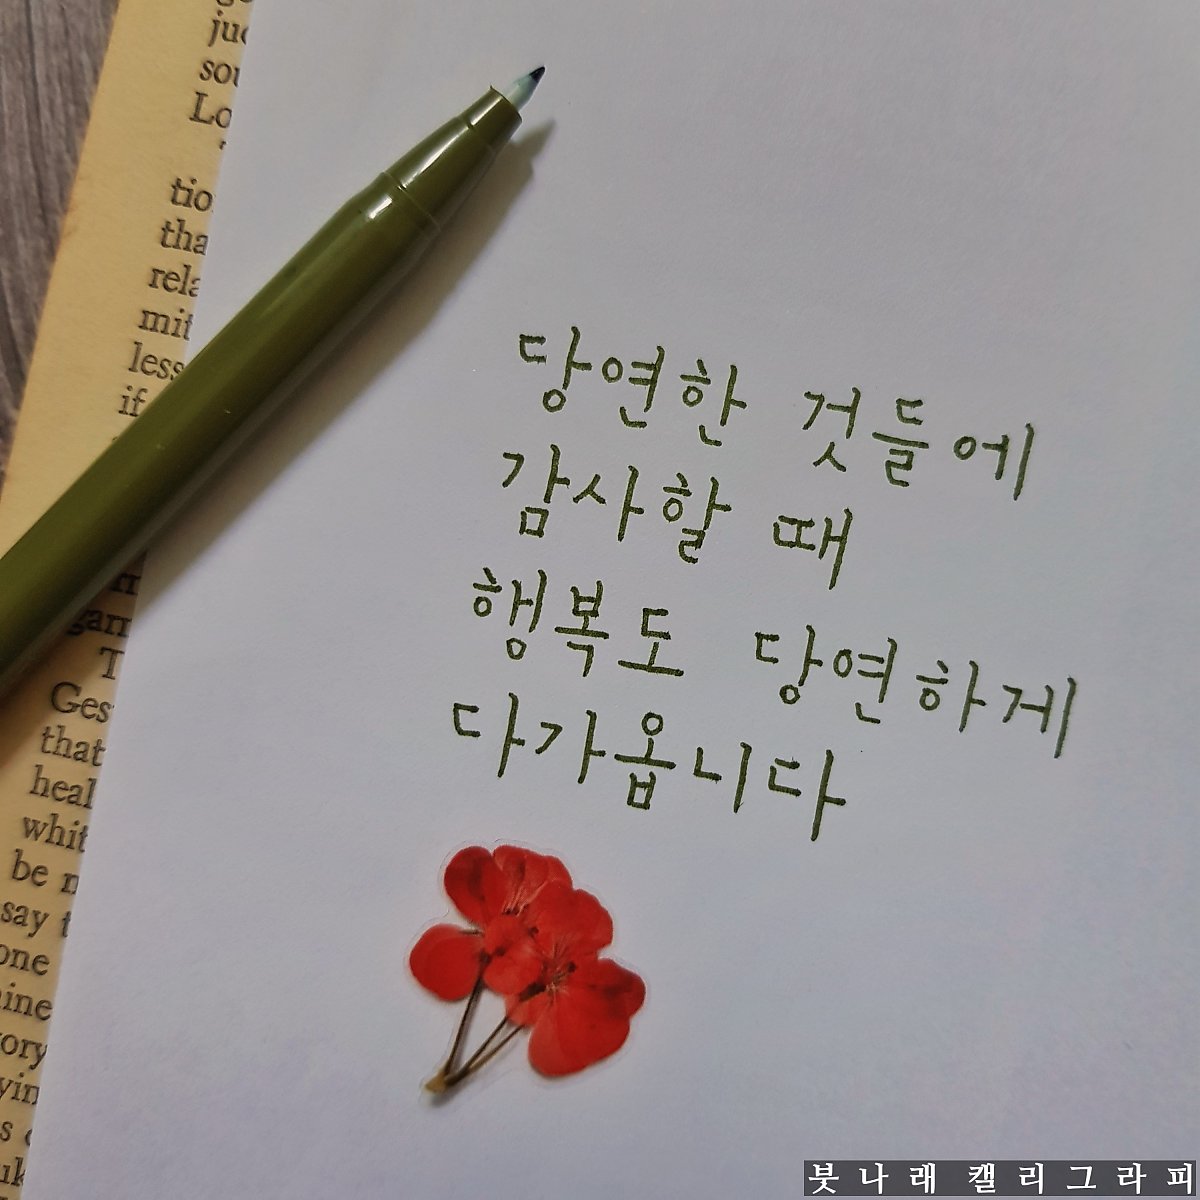 당연한 것들에
감사할 때
행복도 당연하게
다가옵니다
tha
rela
mit
less
if
Ges
that
heal
whit
be
say
one
붓나래캘리그라피